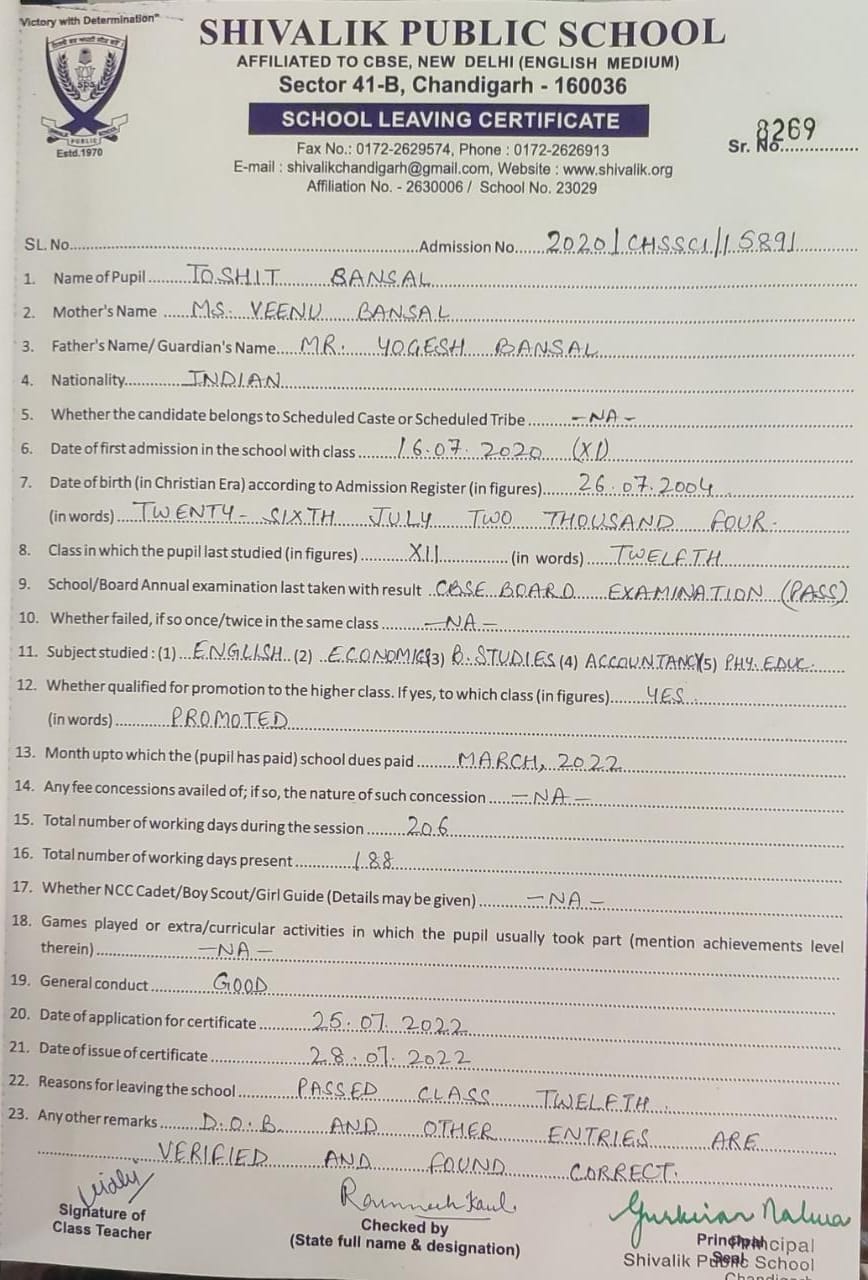 "Victory with Determination"
SHIVALIK PUBLIC SCHOOL
AFFILIATED TO CBSE, NEW DELHI (ENGLISH MEDIUM)
Sector 41-B, Chandigarh - 160036
SCHOOL LEAVING CERTIFICATE
Estd.1970
Fax No.: 0172-2629574, Phone : 0172-2626913
E-mail : shivalikchandigarh@gmail.com, Website : www.shivalik.org
Affiliation No. - 2630006 / School No. 23029
Sr. No. 8269
SL. No. Admission No. 2020/CHSSCI/15891
1. Name of Pupil IOSHIT BANSAL
2. Mother's Name MS. VEENU BANSAL
3. Father's Name/ Guardian's Name MR. YOGESH BANSAL
4. Nationality INDIAN
5. Whether the candidate belongs to Scheduled Caste or Scheduled Tribe -NA-
6. Date of first admission in the school with class 16.07.2020 (XI)
7. Date of birth (in Christian Era) according to Admission Register (in figures) 26.07.2004
(in words) TWENTY- SIXTH JULY TWO THOUSAND FOUR.
8. Class in which the pupil last studied (in figures) XII (in words) TWELFTH
9. School/Board Annual examination last taken with result CBSE BOARD EXAMINATION (PASS)
10. Whether failed, if so once/twice in the same class -NA-
11. Subject studied : (1) ENGLISH (2) ECONOMICS (3) B. STUDIES (4) ACCOUNTANCY (5) PHY. EDUC.
12. Whether qualified for promotion to the higher class. If yes, to which class (in figures) YES
(in words) PROMOTED
13. Month upto which the (pupil has paid) school dues paid MARCH, 2022
14. Any fee concessions availed of; if so, the nature of such concession -NA-
15. Total number of working days during the session 206
16. Total number of working days present 188
17. Whether NCC Cadet/Boy Scout/Girl Guide (Details may be given) -NA-
18. Games played or extra/curricular activities in which the pupil usually took part (mention achievements level
therein) -NA-
19. General conduct GOOD
20. Date of application for certificate 25.07.2022
21. Date of issue of certificate 28.07.2022
22. Reasons for leaving the school PASSED CLASS TWELFTH.
23. Any other remarks D.O.B. AND OTHER ENTRIES ARE
VERIFIED AND FOUND CORRECT.
Signature of
Class Teacher
Checked by
(State full name & designation)
Principal
Seal
Principal
Shivalik Public School
Chandigarh